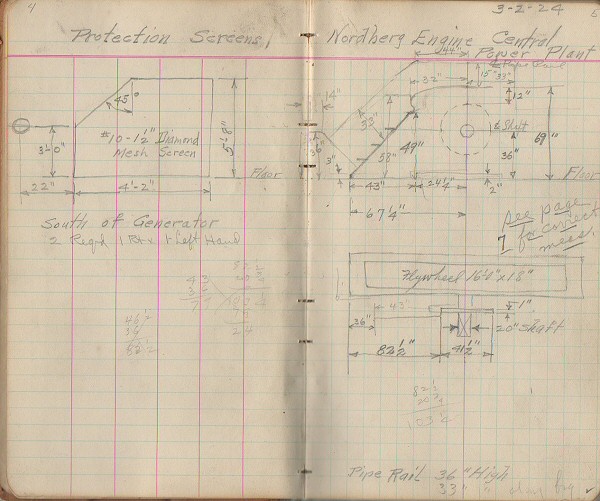 4
Protection Screens,
45°
#10-1½" Diamond
Mesh Screen
3'-0"
5'-8"
Floor
22"
4'-2"
South of Generator
2 Reqd 1 Rt & 1 Left Hand
82½
3-2-24
5
Nordberg Engine Central
Power Plant
44"
Pipe Rail
32"
15"
33"
14"
12"
33"
¢ Shaft
36"
49"
58"
36"
69"
3"
Floor
43"
24¼"
2"
67¼"
see page
7 for correct
meas.
Flywheel 16'-0" x 18"
43"
1"
36"
20" Shaft
82½"
41½"
82½
20¾
103¼
Pipe Rail 36" High
33" "